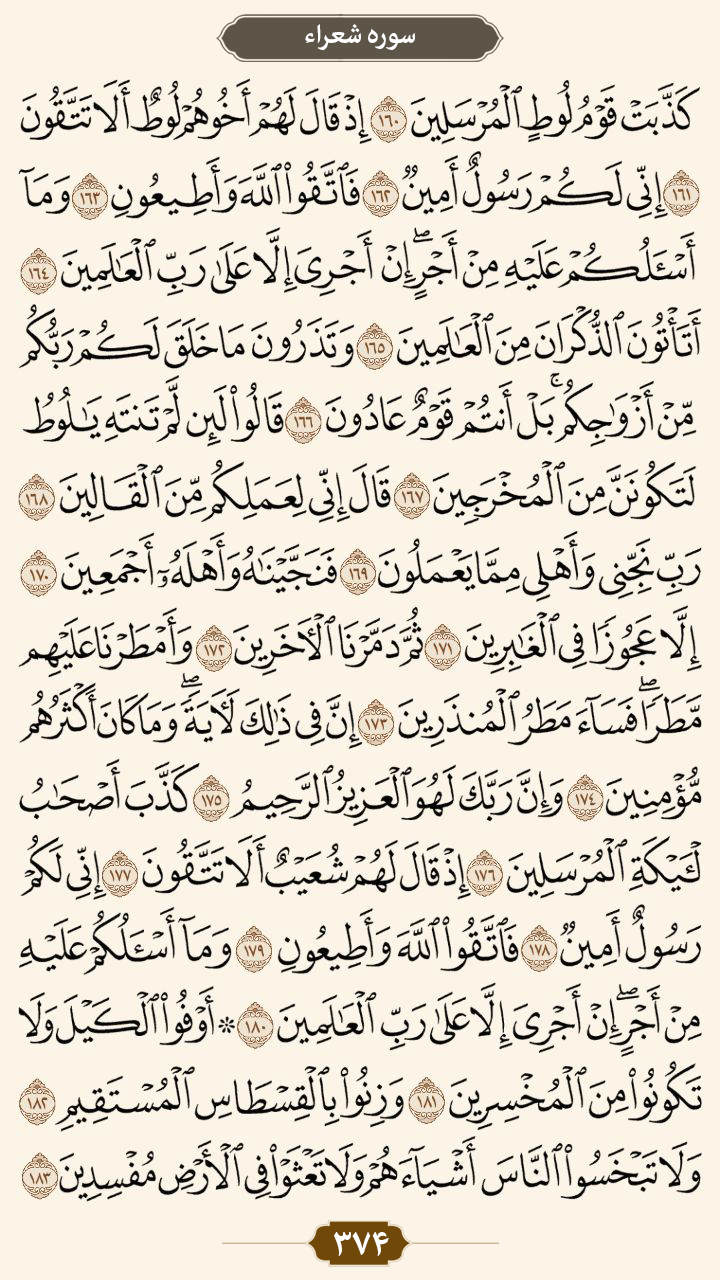 سوره شعراء
كَذَّبَتْ قَوْمُ لُوطٍ ٱلْمُرْسَلِينَ ١٦٠ إِذْ قَالَ لَهُمْ أَخُوهُمْ لُوطٌ أَلَا تَتَّقُونَ
١٦١ إِنِّي لَكُمْ رَسُولٌ أَمِينٌ ١٦٢ فَٱتَّقُوا۟ ٱللَّهَ وَأَطِيعُونِ ١٦٣ وَمَآ
أَسْـَٔلُكُمْ عَلَيْهِ مِنْ أَجْرٍ ۖ إِنْ أَجْرِىَ إِلَّا عَلَىٰ رَبِّ ٱلْعَـٰلَمِينَ ١٦٤
أَتَأْتُونَ ٱلذُّكْرَانَ مِنَ ٱلْعَـٰلَمِينَ ١٦٥ وَتَذَرُونَ مَا خَلَقَ لَكُمْ رَبُّكُم
مِّنْ أَزْوَٰجِكُم ۚ بَلْ أَنتُمْ قَوْمٌ عَادُونَ ١٦٦ قَالُوا۟ لَئِن لَّمْ تَنتَهِ يَـٰلُوطُ
لَتَكُونَنَّ مِنَ ٱلْمُخْرَجِينَ ١٦٧ قَالَ إِنِّي لِعَمَلِكُم مِّنَ ٱلْقَالِينَ ١٦٨
رَبِّ نَجِّنِي وَأَهْلِي مِمَّا يَعْمَلُونَ ١٦٩ فَنَجَّيْنَـٰهُ وَأَهْلَهُۥٓ أَجْمَعِينَ ١٧٠
إِلَّا عَجُوزًا فِي ٱلْغَـٰبِرِينَ ١٧١ ثُمَّ دَمَّرْنَا ٱلْـَٔاخَرِينَ ١٧٢ وَأَمْطَرْنَا عَلَيْهِم
مَّطَرًا ۖ فَسَآءَ مَطَرُ ٱلْمُنذَرِينَ ١٧٣ إِنَّ فِي ذَٰلِكَ لَـَٔايَةً ۖ وَمَا كَانَ أَكْثَرُهُم
مُّؤْمِنِينَ ١٧٤ وَإِنَّ رَبَّكَ لَهُوَ ٱلْعَزِيزُ ٱلرَّحِيمُ ١٧٥ كَذَّبَ أَصْحَـٰبُ
لْـَٔيْكَةِ ٱلْمُرْسَلِينَ ١٧٦ إِذْ قَالَ لَهُمْ شُعَيْبٌ أَلَا تَتَّقُونَ ١٧٧ إِنِّي لَكُمْ
رَسُولٌ أَمِينٌ ١٧٨ فَٱتَّقُوا۟ ٱللَّهَ وَأَطِيعُونِ ١٧٩ وَمَآ أَسْـَٔلُكُمْ عَلَيْهِ
مِنْ أَجْرٍ ۖ إِنْ أَجْرِىَ إِلَّا عَلَىٰ رَبِّ ٱلْعَـٰلَمِينَ ١٨٠ * أَوْفُوا۟ ٱلْكَيْلَ وَلَا
تَكُونُوا۟ مِنَ ٱلْمُخْسِرِينَ ١٨١ وَزِنُوا۟ بِٱلْقِسْطَاسِ ٱلْمُسْتَقِيمِ ١٨٢
وَلَا تَبْخَسُوا۟ ٱلنَّاسَ أَشْيَآءَهُمْ وَلَا تَعْثَوْا۟ فِي ٱلْأَرْضِ مُفْسِدِينَ ١٨٣
۳۷۴